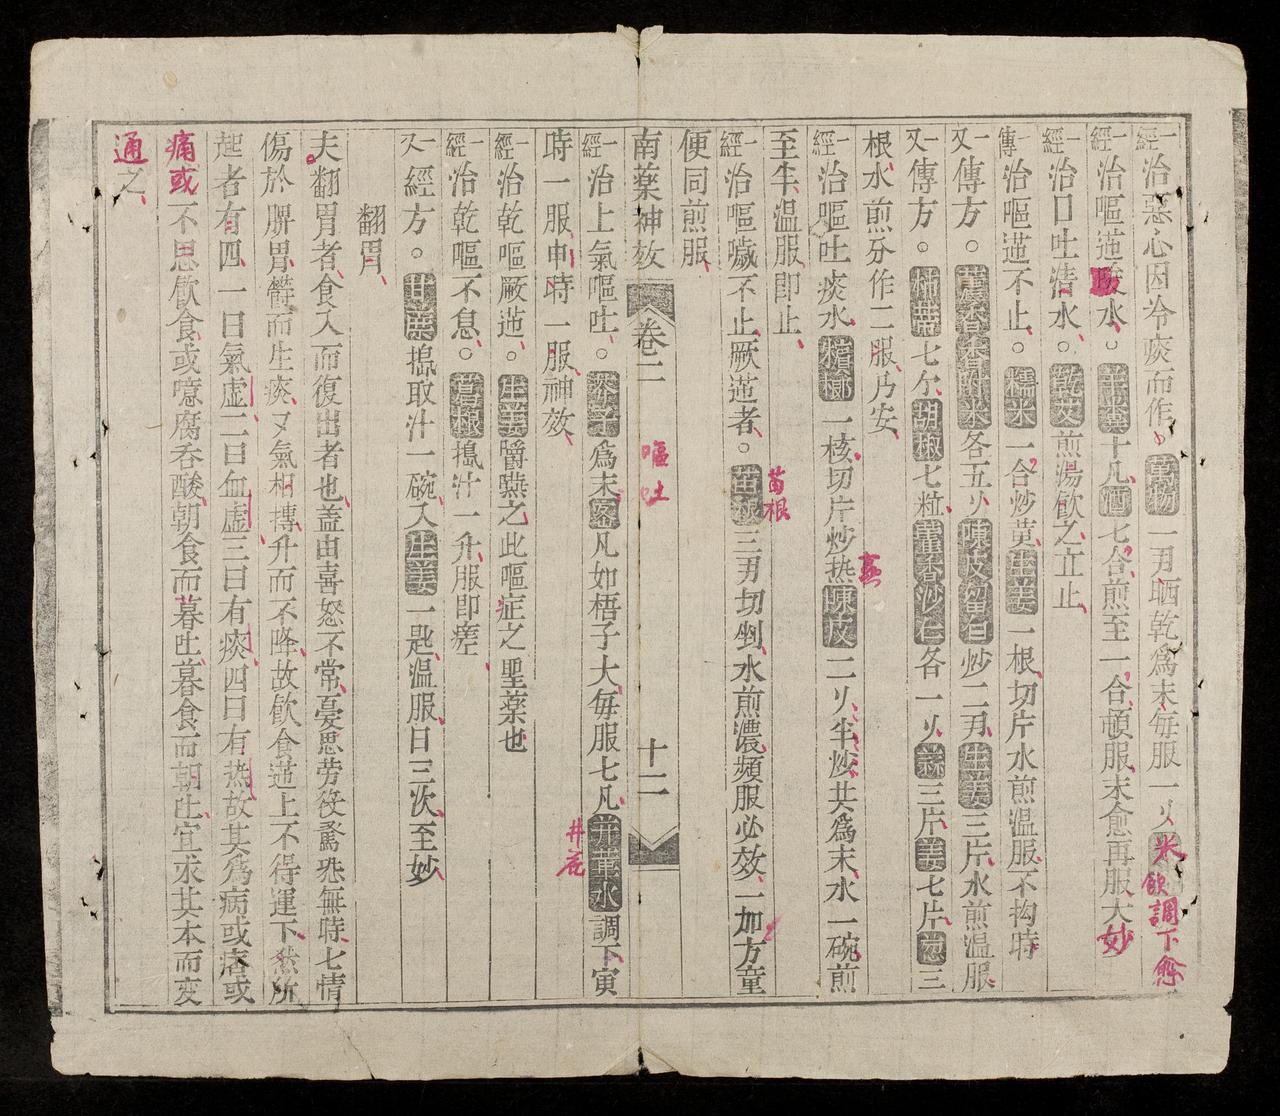 一經治惡心因冷痰而作。萬物一刄晒乾爲末每服一〻米飲調下愈
一經治嘔逆酸水。羊糞十凡酒七合煎至一合頓服未愈再服大妙
一經治口吐清水。乾艾煎湯飲之立止
一傳治嘔逆不止。糯米一合炒黄生姜一根切片水煎温服不拘時
又一傳方。藿香香附米各五〻陳皮留白炒二刄生姜三片水煎温服
又一傳方。柿蒂七个胡椒七粒藿香沙仁各一〻蒜三片姜七片葱三
根水煎分作二服乃安
一經治嘔吐痰水檳榔一核切片炒热陳皮二〻半炒共爲末水一碗煎
至半温服即止
一經治嘔噦不止厥逆者。苗根三刄切剉水煎濃頻服必效一加方童
便同煎服
南藥神效 卷二 嘔吐 十二
一經治上氣嘔吐。芥子爲末密凡如梧子大每服七凡井華水調下寅
時一服申時一服神效
一經治乾嘔厥逆。生姜嚼嚥之此嘔症之聖藥也
一經治乾嘔不息。葛根搗汁一升服即瘥
又一經方。甘蔗搗取汁一碗入生姜一匙温服日三次至妙
翻胃
夫翻胃者食入而復出者也盖由喜怒不常憂思劳役驚恐無時七情
傷於脾胃欝而生痰又氣相搏升而不降故飲食逆上不得運下然所
起者有四一曰氣虚二曰血虚三曰有痰四曰有热故其爲病或痞或
痛或不思飲食或噫腐吞酸朝食而暮吐暮食而朝吐宜求其本而变
通之
苗根
熱
井花